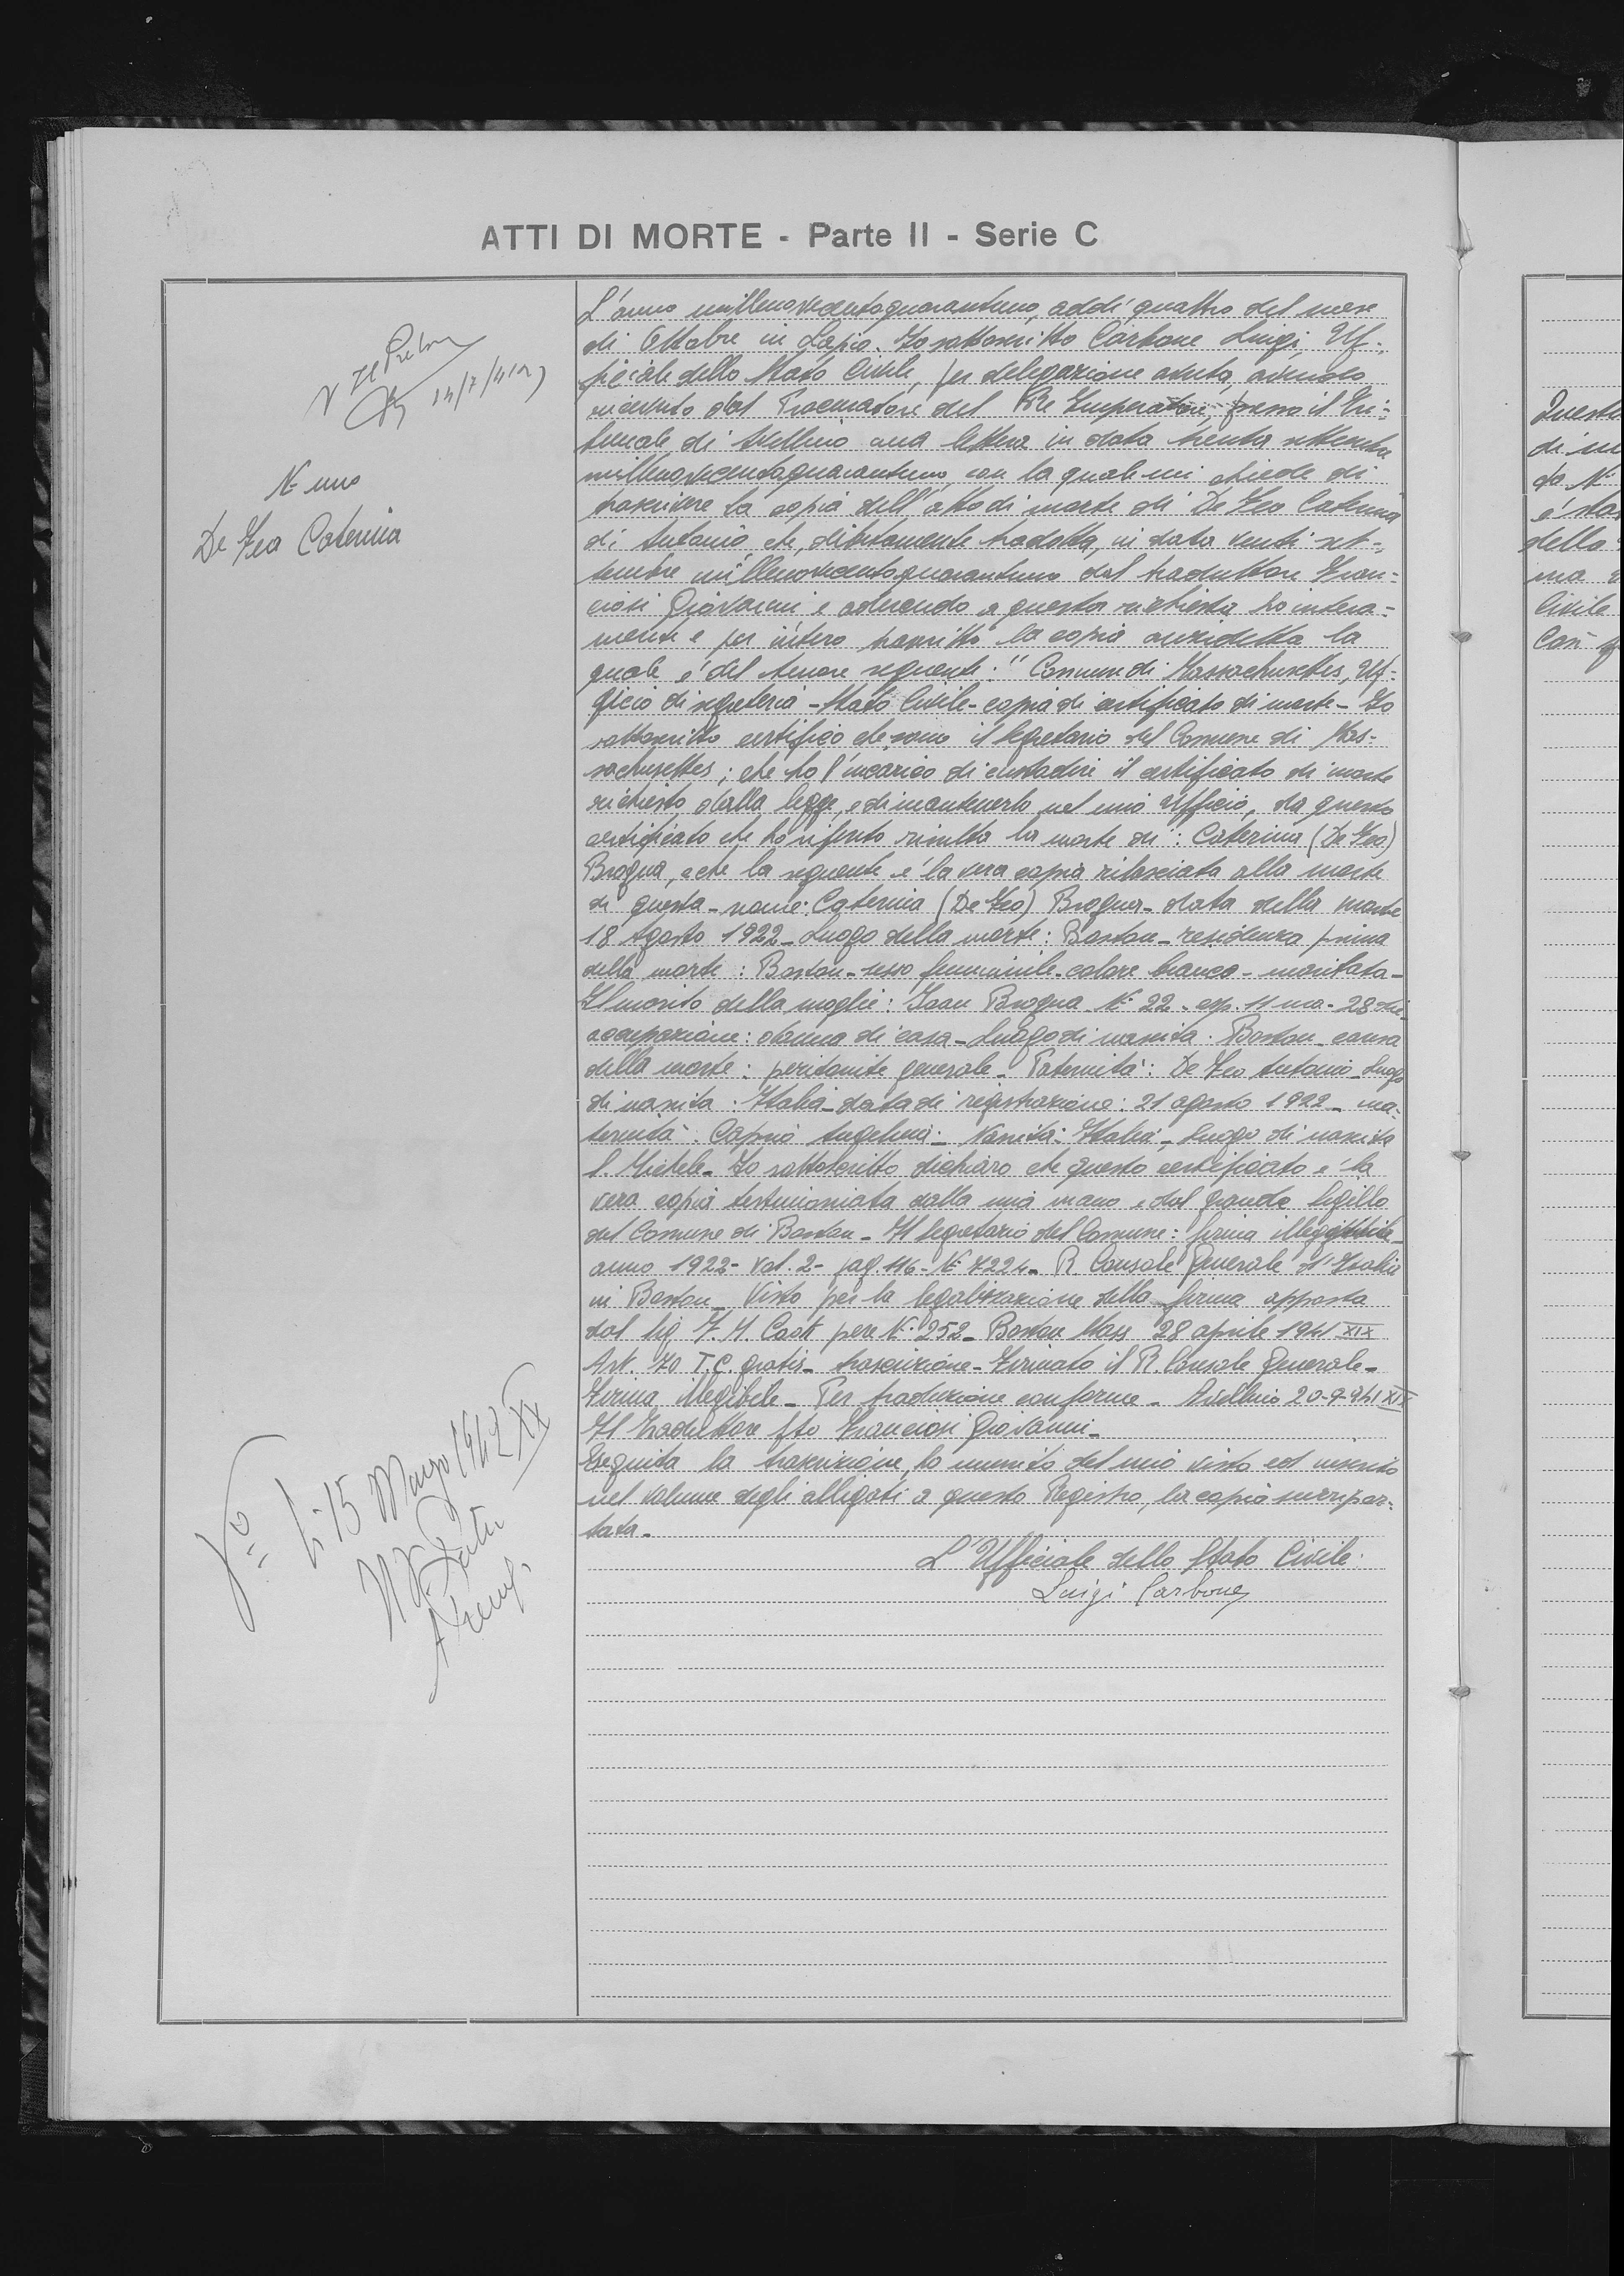 ATTI DI MORTE - Parte II - Serie C
14/7/942
N. uno
De Feo Caterina
L'anno millenovecentoquarantuno, addì quattro del mese
di Ottobre in Lapio. Io sottoscritto Carbone Luigi, Uf-
ficiale dello Stato Civile, per delegazione avuta, avendo
ricevuto dal Procuratore del Re Imperatore, presso il Tri-
bunale di Avellino una lettera in data trenta settembre
millenovecentoquarantuno, con la quale mi chiede di
trascrivere la copia dell'atto di morte di De Feo Caterina
di Antonio che, debitamente tradotta, in data venti set-
tembre millenovecentoquarantuno dal traduttore Fran-
ciosi Giovanni e aderendo a questa richiesta ho intera-
mente e per intero trascritto la copia anzidetta la
quale è del tenore seguente: "Comune di Massachusettes, Uf-
ficio di segreteria - Stato Civile - copia di certificato di morte - Io
sottoscritto certifico che sono il segretario del Comune di Mas-
sachusettes; che ho l'incarico di custodire il certificato di morte
richiesto dalla legge, e di mantenerlo nel mio ufficio, da questo
certificato che ho riferito risulta la morte di: Caterina (De Feo)
Brogna, e che la seguente è la vera copia rilasciata alla morte
di questa - nome: Caterina (De Feo) Brogna - data della morte
18 Agosto 1922 - Luogo della morte: Boston - residenza prima
della morte: Boston - sesso femminile - colore bianco - maritata -
Il marito della moglie: Joan Brogna N. 22 - 11 ma - 28
occupazione: donna di casa - Luogo di nascita: Boston - causa
della morte: peritonite generale - Paternità: De Feo Antonio - Luogo
di nascita: Italia - data di registrazione: 21 agosto 1922 - ma-
ternità: Caprio Angelina - Nascita: Italia - luogo di nascita
S. Michele - Io sottoscritto dichiaro che questo certificato è la
vera copia testimoniata dalla mia mano e dal grande sigillo
del Comune di Boston - Il segretario del Comune: firma illeggibile -
anno 1922 - Vol. 2 - pag. 116 - N. 7224 - R. Console Generale d'Italia
in Boston - Visto per la legalizzazione della firma apposta
dal sig. N. 252 - Boston Mass 28 aprile 1941 XIX
Art. 70 T.C. gratis - trascrizione - Firmato il R. Console Generale -
Firma illegibile - Per traduzione conforme - Avellino 20-9-941 XIX
Il traduttore fto Franciosi Giovanni -
Eseguita la trascrizione, ho munito del mio visto ed inserito
nel volume degli allegati a questo Registro, la copia surripor-
tata -
L'Ufficiale dello Stato Civile:
Luigi Carbone
Vo
Lì 15 Marzo 1942 XX
Queste
di
da N.
è sta
della
ma
Civile